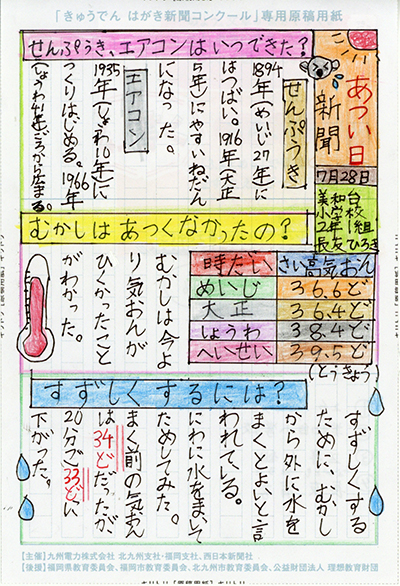 「きゅうでん はがき新聞コンクール」専用原稿用紙
あつい日
新聞
7月28日
美和台
小学校
2年1組
長友ひろき
せんぷうき、エアコンはいつできた?
せんぷうき
1894年(めいじ27年)に
はつばい。1916年(大正
5年)にやすいねだん
になった。
エアコン
1935年(しょわ10年)に
つくりはじめる。1966年
(しょうわ41年)ごろから広まる。
むかしはあつくなかったの?
時だい さい高気おん
めいじ 36.6ど
大正 36.4ど
しょうわ 38.4ど
へいせい 39.5ど
(とうきょう)
むかしは今よ
り気おんが
ひくかったこと
がわかった。
すずしくするには?
すずしくする
ために、むかし
から外に水を
まくとよいと言
われている。
にわに水をまいて
ためしてみた。
まく前の気おん
は34どだったが、
20分で33どに
下がった。
【主催】九州電力株式会社 北九州支社・福岡支社、西日本新聞社
【後援】福岡県教育委員会、福岡市教育委員会、北九州市教育委員会、公益財団法人 理想教育財団